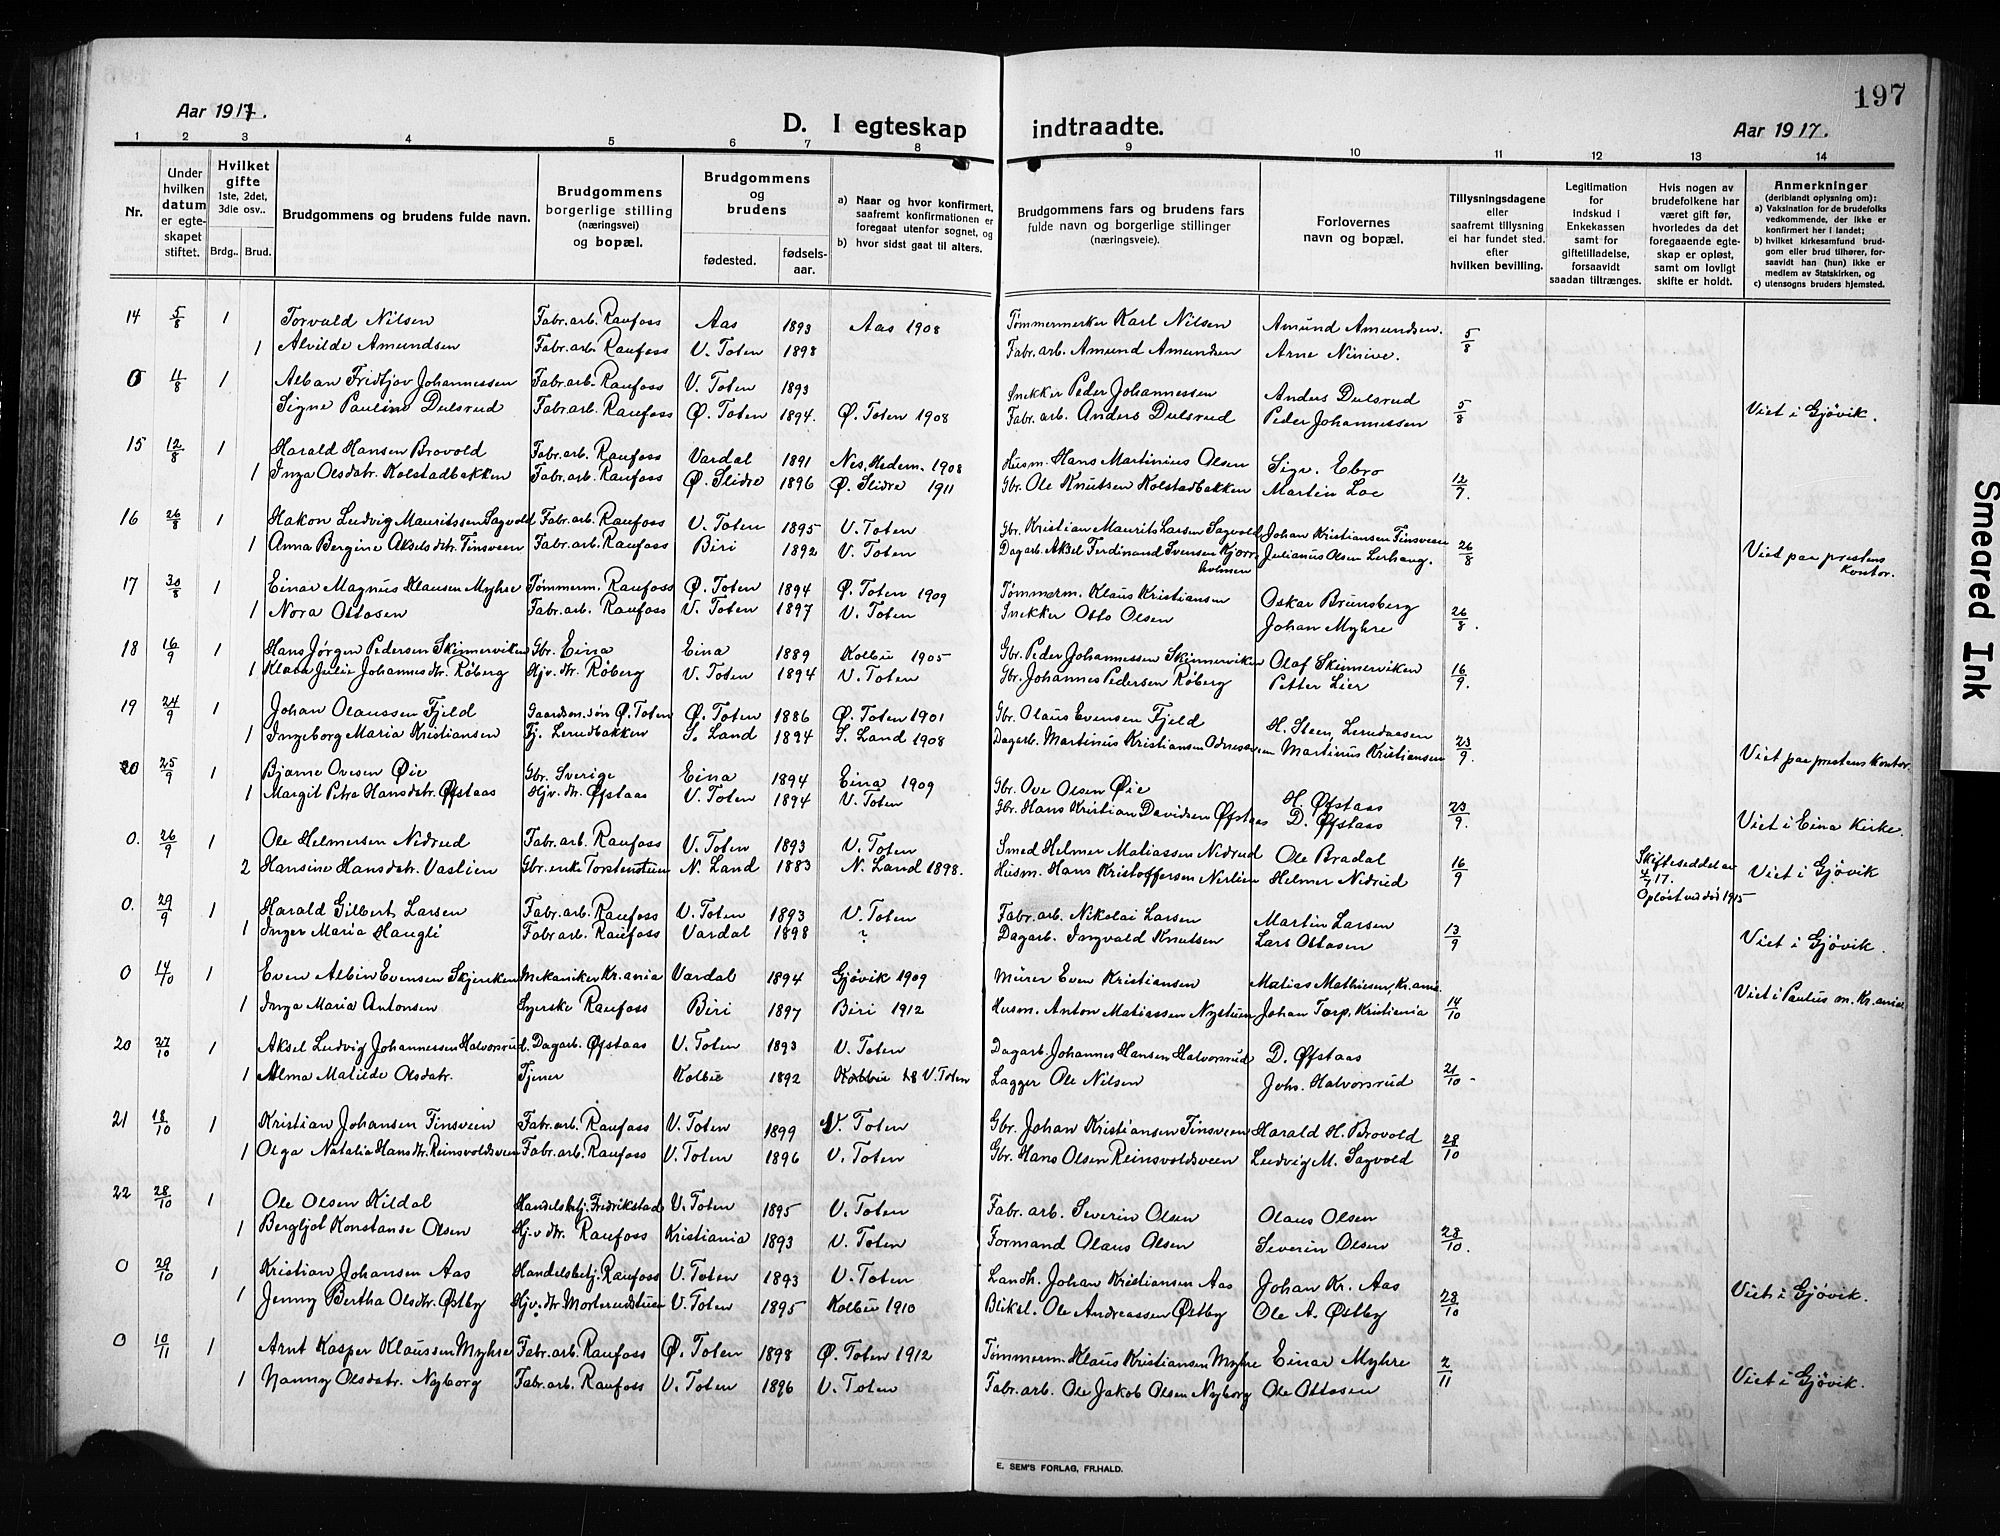 197
Aar 1917.
D. I egteskap indtraadte.
Aar 1917.
1 2 3 4 5 6 7 8 9 10 11 12 13 14
Nr.
Under hvilken datum er egteskapet stiftet.
Hvilket gifte 1ste, 2det, 3die osv..
Brdg.. Brud.
Brudgommens og brudens fulde navn.
Brudgommens borgerlige stilling (næringsvei) og bopæl.
Brudgommens og brudens
fødested. fødselsaar.
a) Naar og hvor konfirmert, saafremt konfirmationen er foregaat utenfor sognet, og
b) hvor sidst gaat til alters.
Brudgommens fars og brudens fars fulde navn og borgerlige stillinger (næringsveie).
Forlovernes navn og bopæl.
Tillysningsdagene eller saafremt tillysning ei har fundet sted. efter hvilken bevilling.
Legitimation for Indskud i Enkekassen samt for giftetilladelse, forsaavidt saadan tiltrænges.
Hvis nogen av brudefolkene har været gift før, hvorledes da det foregaaende egteskap er opløst, samt om lovlig skifte er holdt.
Anmerkninger (deriblandt oplysning om):
a) Vaksination for de brudefolks vedkommende, der ikke er konfirmert her i landet;
b) hvilket kirkesamfund brudgom eller brud tilhører, forsaavidt han (hun) ikke er medlem av Statskirken, og
c) utensogns bruders hjemsted.
14 5/8 1 Torvald Nilsen Fabr.arb. Raufoss Aas 1893 Aas 1908 Tømmermerker Karl Nilsen Amund Amundsen. 5/8
1 Alvilde Amundsen Fabr.arb. Raufoss V. Toten 1898 Fabr. arb. Amund Amundsen Arne Ninive.
0 11/8 1 Alban Fridtjov Johannessen Fabr.arb. Raufoss V. Toten 1893 Snekker Peder Johannessen Anders Dulsrud 5/8 Viet i Gjøvik.
Signe Pauline Dulsrud Fabr.arb. Raufoss Ø. Toten 1894. Ø. Toten 1908 Fabr. arb. Anders Dulsrud Peder Johannessen
15 12/8 1 Harald Hansen Brovold Fabr.arb. Raufoss Vardal 1891 Nes, Hedem. 1908 Husm. Hans Martinius Olsen Sigv. Ebro 12/7.
1 Inga Olsdatr. Kolstadbakken Fabr.arb. Raufoss Ø. Slidre 1896 Ø. Slidre 1911 Gbr. Ole Knutsen Kolstadbakken Martin Loe
16 26/8 1 Hakon Ludvig Mauritssen Sagvold Fabr.arb. Raufoss V. Toten 1895 V. Toten Gbr. Kristian Maurits Larsen Sagvold Johan Kristiansen Tinsveen 26/8 Viet paa prestens kontor.
1 Anna Bergine Akselsdtr. Tinsveen Fabr.arb. Raufoss Biri 1892 V. Toten Dagarb. Aksel Ferdinand Svensen Kjorre holmen Julianus Olsen Lerhaug.
17 30/8 1 Einar Magnus Klausen Myhre Tømmerm. Raufoss Ø. Toten 1894 Ø. Toten 1909 Tømmerm. Klaus Kristiansen Oskar Brunsberg 26/8.
1 Nora Ottosen Fabr.arb. Raufoss V. Toten 1897 V. Toten Snekker Otto Olsen Johan Myhre
18 16/9 1 Hans Jørgen Pedersen Skinnerviken Gbr. Eina Eina 1889 Kolbu 1905 Gbr. Peder Johannessen Skinnerviken Olaf Skinnerviken 16/9.
1 Klara Julie Johannesdtr. Røberg Hjv. dtr. Røberg V. Toten 1894 V. Toten Gbr. Johannes Pedersen Røberg Petter Lier
19 24/9 1 Johan Olaussen Fjeld Gaardm.søn Ø. Toten Ø. Toten 1886 Ø. Toten 1901 Gbr. Olaus Evensen Fjeld H. Steen, 23/9. Viet paa prestens kontor.
1 Ingeborg Maria Kristiansen Tj. Lerudbakken S. Land 1894 S. Land 1908 Dagarb. Martinus Kristiansen Martinus Kristiansen
20 25/9 1 Bjarne Ovesen Øie Gbr. Sverige Eina 1894 Eina 1909 Gbr. Ove Olsen Øie H. Øfstaas 23/9. Viet i Eina Kirke.
1 Margit Petra Hansdatr. Øfstaas Hjv. dtr. Øfstaas V. Toten 1894 V. Toten Gbr. Hans Kristian Davidsen Øfstaas D. Øfstaas
0. 26/9 1 Ole Helmersen Nedrud Fabr.arb. Raufoss V. Toten 1893 V. Toten Smed Helmer Matiassen Nedrud Ole Bradal 16/9 Skifteseddel av 4/7 17. Opløst ved død 1915 Viet i Gjøvik
2 Hansine Hansdatr. Vaslien Gbr. enke Torstenstuen N. Land 1883 N. Land 1898. Husm. Hans Kristoffersen Nerlien Helmer Nedrud
0. 29/9 1 Harald Gilbert Larsen Fabr.arb. Raufoss V. Toten 1893 V. Toten Fabr. arb. Nikolai Larsen Martin Larsen 13/9 Viet i Gjøvik.
1 Inger Maria Haugli Fabr.arb. Raufoss Vardal 1898 ? Dagarb. Ingvald Knutsen Lars Ottosen
0 14/10 1 Even Albin Evensen Skjerken Mekaniker Kr.ania Vardal 1894 Gjøvik 1909 Murer Even Kristiansen Matias Mathiesen, Kr.ania 14/10 Viet i Paulus m. Kr.ania
1 Inga Maria Antonsen Syerske Raufoss Biri 1897 Biri 1912 Husm. Anton Matiassen Nystuen Johan Torp, Kristiania
20 27/10 1 Aksel Ludvig Johannessen Halvorsrud. Dagarb. Øfstaas V. Toten 1893 V. Toten Dagarb. Johannes Hansen Halvorsrud D. Øfstaas 21/10 -
1 Alma Matilde Olsdatr. Tjener Kolbu 1892 V. Toten Lagger Ole Nilsen Johs. Halvorsrud
21 18/10 1 Kristian Johansen Tinsveen Fabr.arb. Raufoss V. Toten 1899 V. Toten Gbr. Johan Kristiansen Tinsveen Harald H. Brovold 28/10
1 Olga Natalia Hansdtr. Reinsvoldsveen Fabr.arb. Raufoss V. Toten 1896 V. Toten Gbr. Hans Olsen Reinsvoldsveen Ludvig M. Sagvold
22 28/10 1 Ole Olsen Kildal Handelsbetj. Fredrikstad V. Toten 1895 V. Toten Fabr. arb. Severin Olsen Olaus Olsen 28/10.
1 Bergljot Konstanse Olsen Hj.v dtr. Raufoss Kristiania 1893 V. Toten Formand Olaus Olsen Severin Olsen
0 29/10 1 Kristian Johansen Aas Handelsbetj. Raufoss V. Toten 1893 V. Toten Landh. Johan Kristiansen Aas Johan Kr. Aas 28/10 Viet i Gjøvik.
1 Jenny Bertha Olsdtr. Østby Hjv. dtr Morterudstuen V. Toten 1895 Kolbu 1910 Bliksl. Ole Andreassen Østby Ole A. Østby
0 10/11 1 Arnt Kasper Klaussen Myhre Fabr.arb. Raufoss Ø. Toten 1898 Ø. Toten 1912 Tømmerm. Klaus Kristiansen Myhre Einar Myhre 2/11 Viet i Gjøvik.
1 Nanny Olsdatr. Nyborg Fabr.arb. Raufoss V. Toten 1896 V. Toten Fabr. arb. Ole Jakob Olsen Nyborg Ole Ottosen
E. SEM'S FORLAG, FR.HALD.
Smeared Ink